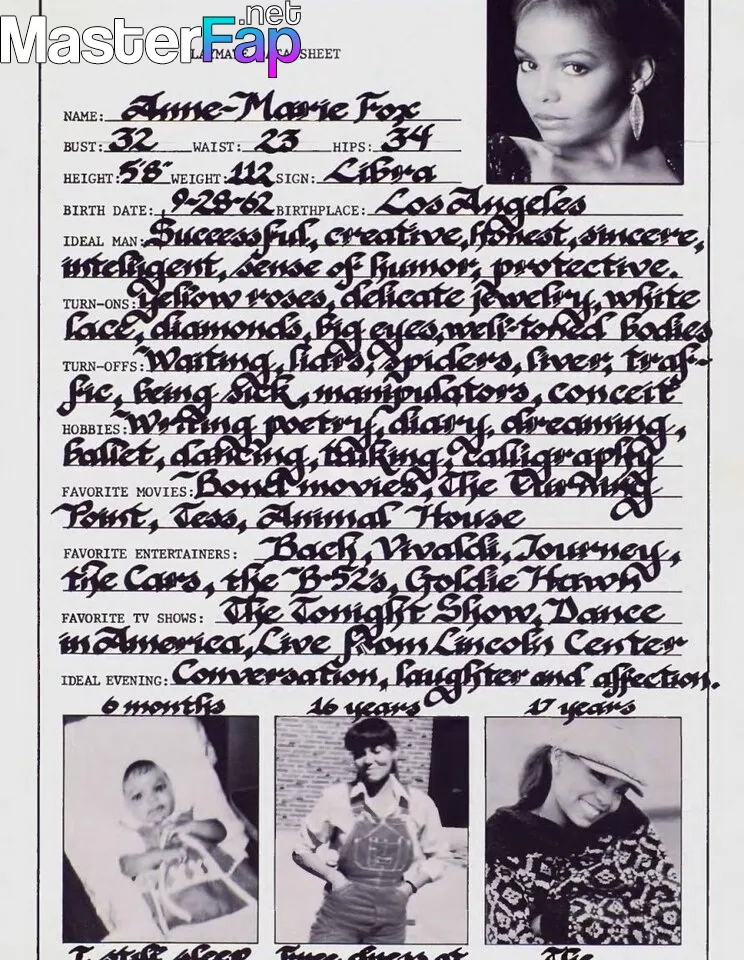 MasterFap.net
PLAYMATE DATA SHEET
NAME: Anne-Marie Fox
BUST: 32 WAIST: 23 HIPS: 34
HEIGHT: 5'8" WEIGHT: 112 SIGN: Libra
BIRTH DATE: 9-28-62 BIRTHPLACE: Los Angeles
IDEAL MAN: Successful, creative, honest, sincere,
intelligent, sense of humor, protective.
TURN-ONS: Yellow roses, delicate jewelry, white
lace, diamonds, big eyes, well-toned bodies
TURN-OFFS: Waiting, liars, spiders, liver, traf-
fic, being sick, manipulators, conceit
HOBBIES: Writing poetry, diary, dreaming,
ballet, dancing, talking, calligraphy
FAVORITE MOVIES: Bond movies, The Turning
Point, Tess, Animal House
FAVORITE ENTERTAINERS: Bach, Vivaldi, Journey,
the Cars, the B-52's, Goldie Hawn
FAVORITE TV SHOWS: The Tonight Show, Dance
in America, Live from Lincoln Center
IDEAL EVENING: Conversation, laughter and affection.
6 months 16 years 17 years
I still sleep